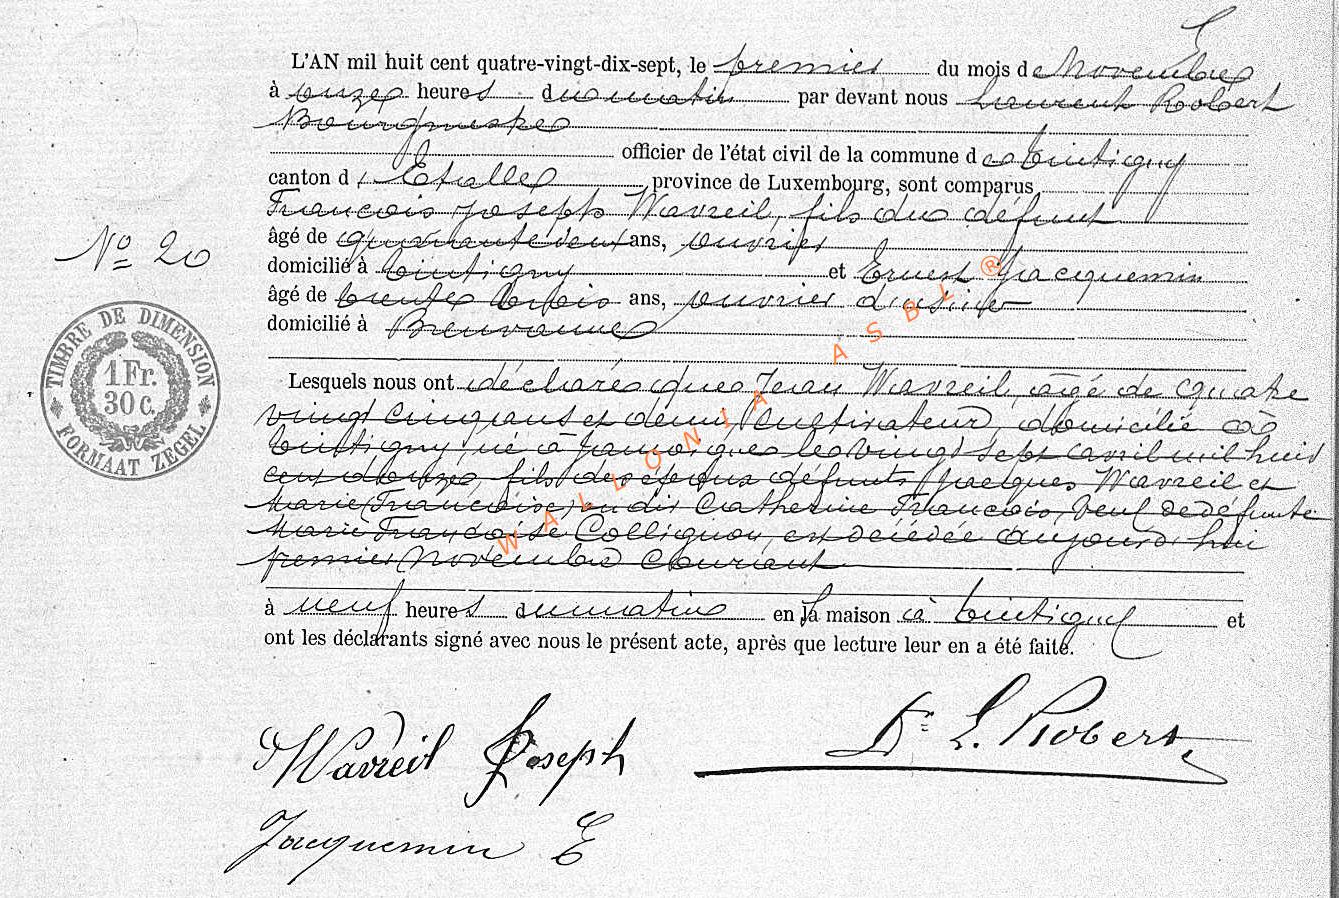 L'AN mil huit cent quatre-vingt-dix-sept, le premier du mois de Novembre
à onze heures du matin par devant nous Laurent Robert
Bourgmestre
officier de l'état civil de la commune de Tintigny
canton d'Etalle province de Luxembourg, sont comparus
François Joseph Wavreil, fils du défunt
N° 20
âgé de quarante deux ans, ouvrier
domicilié à Tintigny et Ernest Jacquemin
âgé de trente trois ans, ouvrier d'usine
domicilié à Breuvanne
TIMBRE DE DIMENSION
1 Fr.
30 c.
FORMAAT ZEGEL
Lesquels nous ont déclaré que Jean Wavreil, âgé de quatre
vingt cinq ans et demi, cultivateur, domicilié à
Tintigny, né à Jamoigne le vingt sept avril mil huit
cent douze, fils des époux défunts Jacques Wavreil et
Marie Françoise, ou dit Catherine François, veuf de défunte
Marie Françoise Collignon, est décédé aujourd'hui
premier novembre courant
à neuf heures du matin en sa maison à Tintigny et
ont les déclarants signé avec nous le présent acte, après que lecture leur en a été faite.
Wavreil Joseph
Dr L. Robert
Jacquemin E
WALLONIA ASBL ®